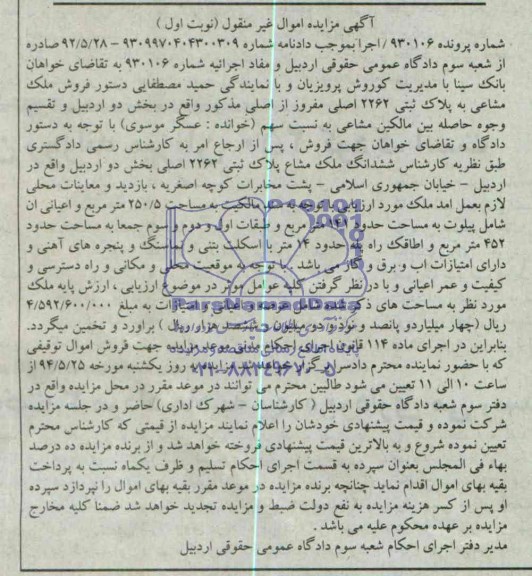 آگهی مزایده اموال غیر منقول (نوبت اول)
شماره پرونده ۹۳۰۱۰۶ / اجرا بموجب دادنامه شماره ۹۳۰۹۹۷۰۴۰۴۳۰۰۳۰۹ - ۹۲/۵/۲۸ صادره
از شعبه سوم دادگاه عمومی حقوقی اردبیل و مفاد اجرائیه شماره ۹۳۰۱۰۶ به تقاضای خواهان
بانک سینا با مدیریت کوروش پرویزیان و با نمایندگی حمید مصطفایی دستور فروش ملک
مشاعی به پلاک ثبتی ۲۲۶۲ اصلی مفروز از اصلی مذکور واقع در بخش دو اردبیل و تقسیم
وجوه حاصله بین مالکین مشاعی به نسبت سهم (خوانده : عسگر موسوی) با توجه به دستور
دادگاه و تقاضای خواهان جهت فروش ، پس از ارجاع امر به کارشناس رسمی دادگستری
طبق نظریه کارشناس ششدانگ ملک مشاع پلاک ثبتی ۲۲۶۲ اصلی بخش دو اردبیل واقع در
اردبیل - خیابان جمهوری اسلامی - پشت مخابرات کوچه اصغریه ، بازدید و معاینات محلی
لازم بعمل امد ملک مورد ارزیابی با توجه به مالکیت به مساحت ۲۵۰/۵ متر مربع و اعیانی ان
شامل پیلوت به مساحت حدود ۱۴۸ متر مربع و طبقات اول و دوم و سوم جمعا به مساحت حدود
۴۵۲ متر مربع و اطاقک راه پله حدود ۱۴ متر با اسکلت بتنی و نماسنگ و پنجره های آهنی و
دارای امتیازات اب و برق و گاز می باشد . با توجه به موقعیت محلی و مکانی و راه دسترسی و
کیفیت و عمر اعیانی و با در نظر گرفتن کلیه عوامل موثر در موضوع ارزیابی ، ارزش پایه ملک
مورد نظر به مساحت های ذکر شده شامل عرصه و اعیانی و امتیازات به مبلغ ۴/۵۹۲/۶۰۰/۰۰۰
ریال (چهار میلیاردو پانصد و نود و دو میلیون و ششصد هزار ریال) براورد و تخمین میگردد.
بنابراین در اجرای ماده ۱۱۴ قانون اجرای احکام مدنی موعد مزایده جهت فروش اموال توقیفی
که با حضور نماینده محترم دادسرا برگزار خواهد شد مزایده به روز یکشنبه مورخه ۹۴/۵/۲۵ از
ساعت ۱۰ الی ۱۱ تعیین می شود طالبین محترم می توانند در موعد مقرر در محل مزایده واقع در
دفتر سوم شعبه دادگاه حقوقی اردبیل ( کارشناسان - شهرک اداری) حاضر و در جلسه مزایده
شرکت نموده و قیمت پیشنهادی خودشان را اعلام نمایند مزایده از قیمتی که کارشناس محترم
تعیین نموده شروع و به بالاترین قیمت پیشنهادی فروخته خواهد شد و از برنده مزایده ده درصد
بهاء فی المجلس بعنوان سپرده به قسمت اجرای احکام تسلیم و ظرف یکماه نسبت به پرداخت
بقیه بهای اموال اقدام نماید چنانچه برنده مزایده در موعد مقرر بقیه بهای اموال را نپردازد سپرده
او پس از کسر هزینه مزایده به نفع دولت ضبط و مزایده تجدید خواهد شد ضمنا کلیه مخارج
مزایده بر عهده محکوم علیه می باشد .
مدیر دفتر اجرای احکام شعبه سوم دادگاه عمومی حقوقی اردبیل
ParsNamadData
پایگاه اطلاع رسانی مناقصه و مزایده
۰۲۱-۸۸۳۴۹۶۷۰-۵